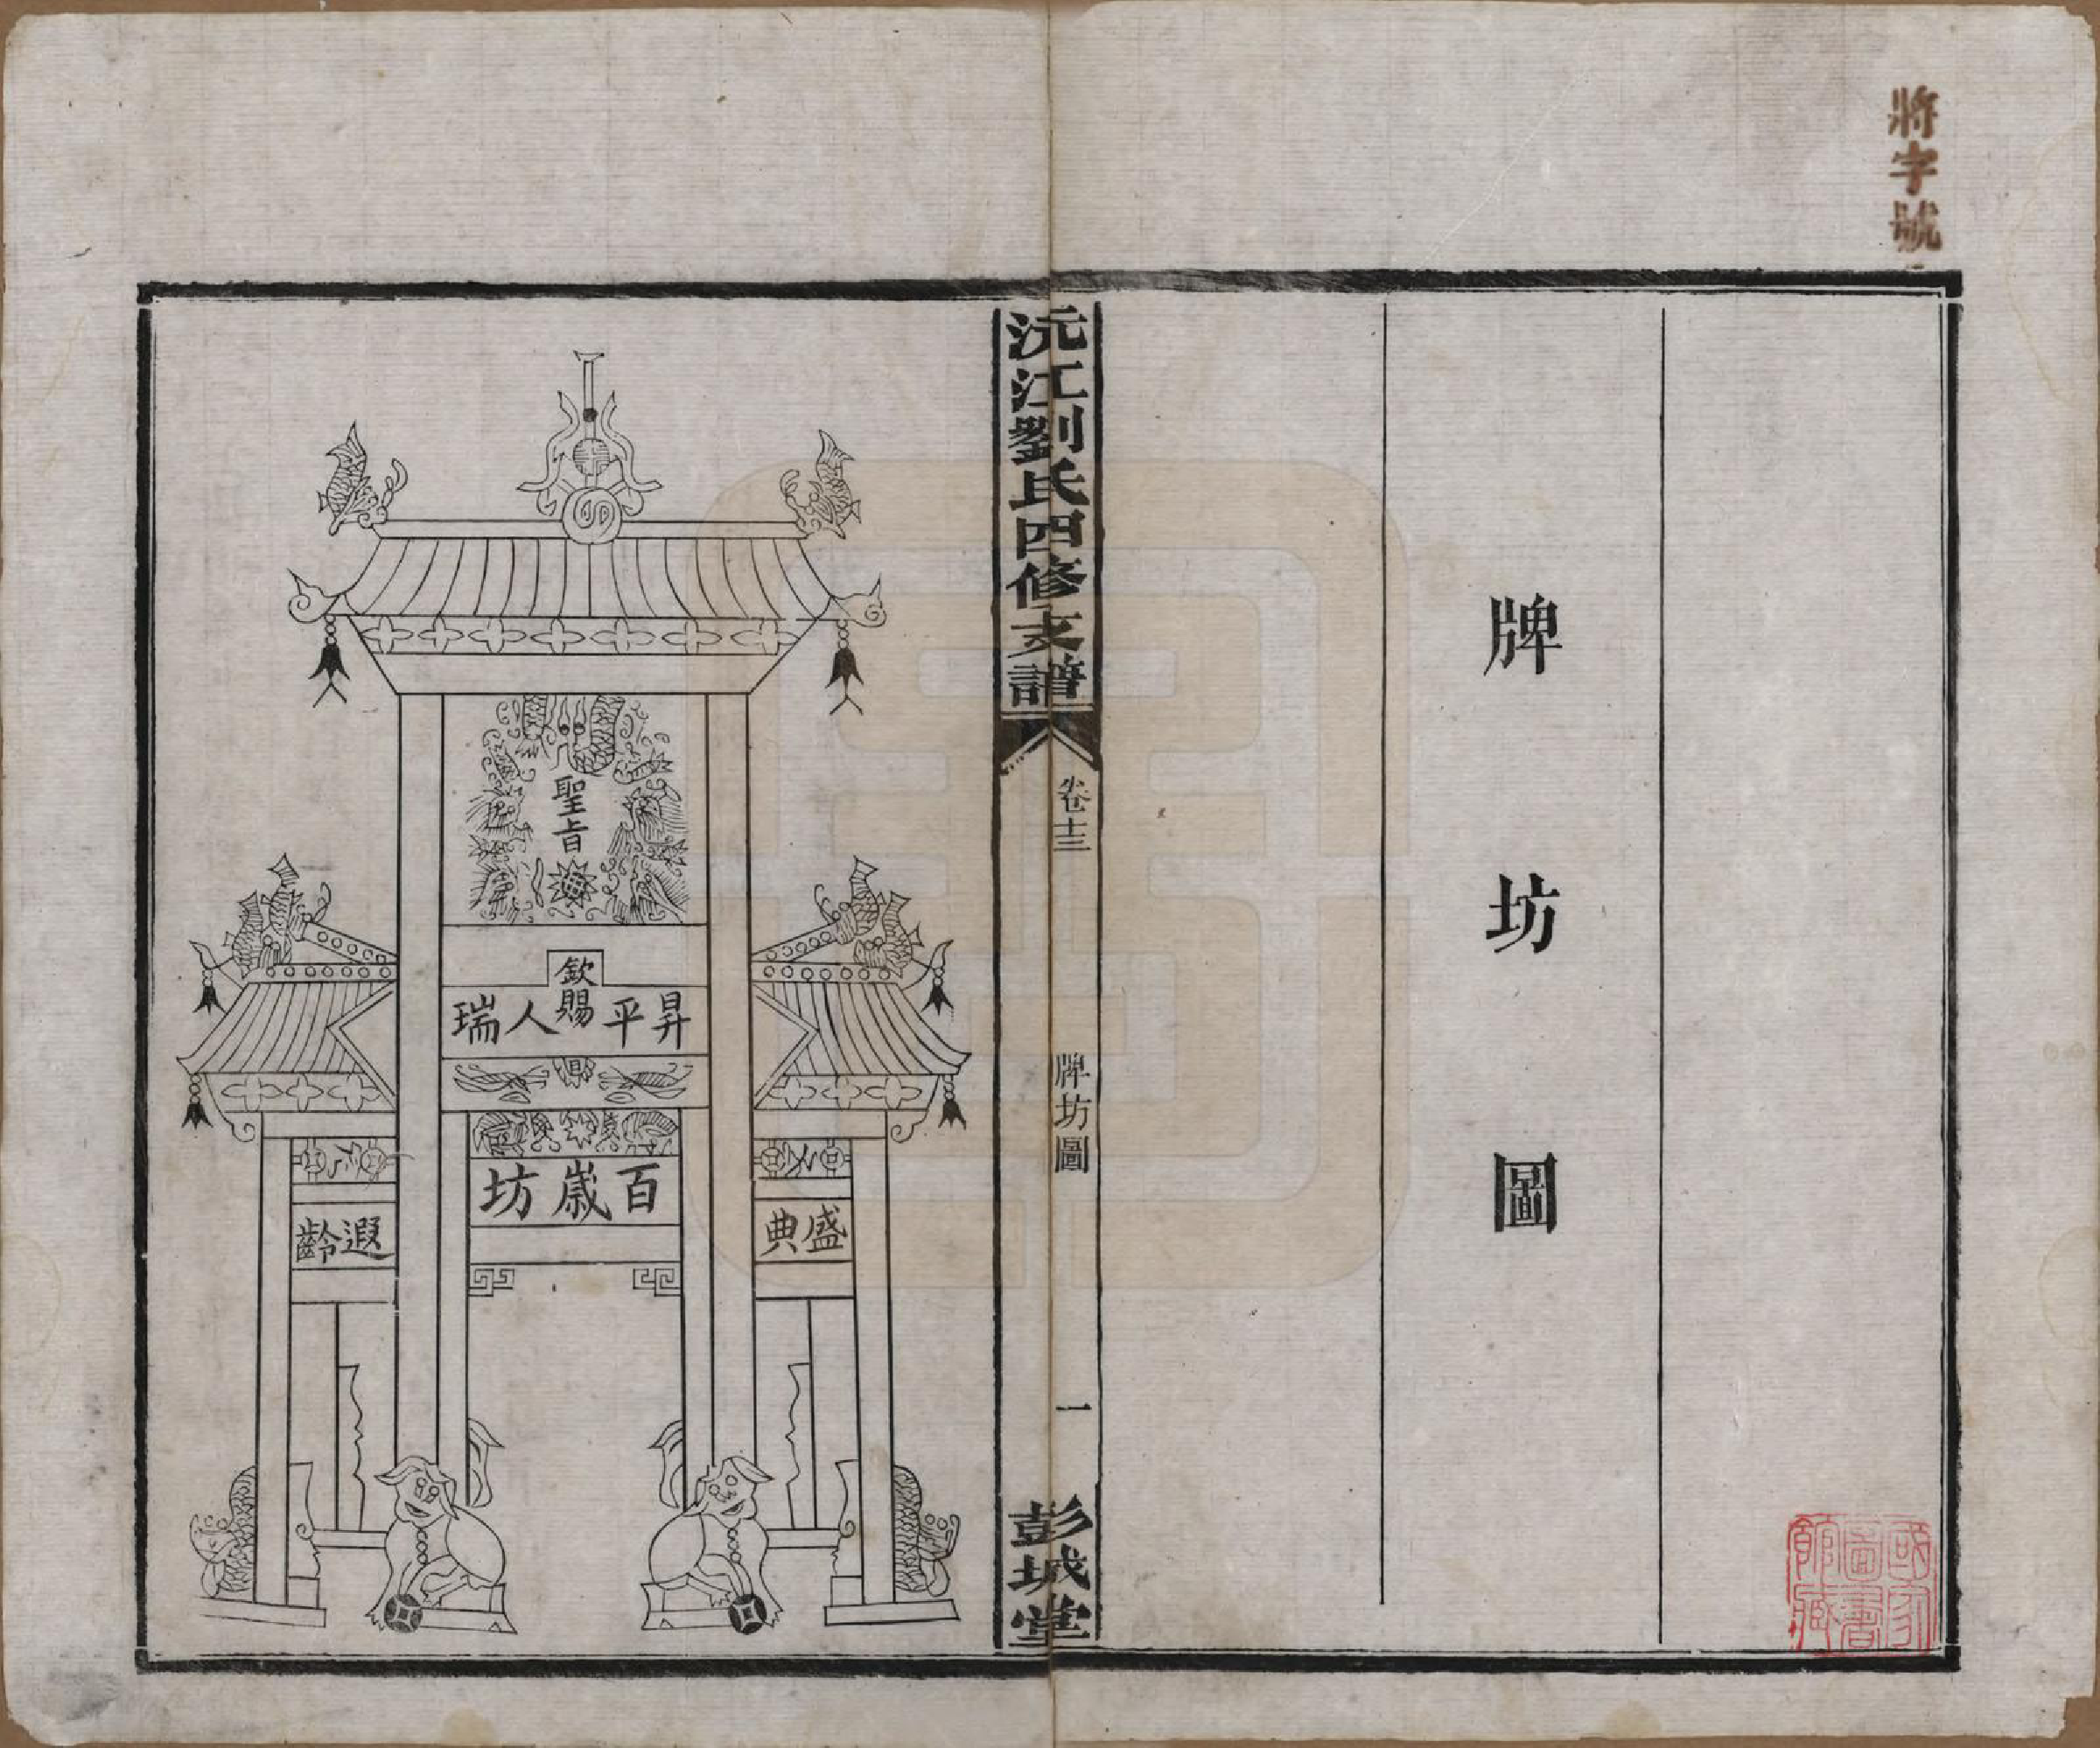 將字號
牌坊圖
國家圖書館藏
沅江劉氏四修支譜
卷十三
牌坊圖
一
彭城堂
聖旨
欽賜
昇平人瑞
百歲坊
盛典
遐齡